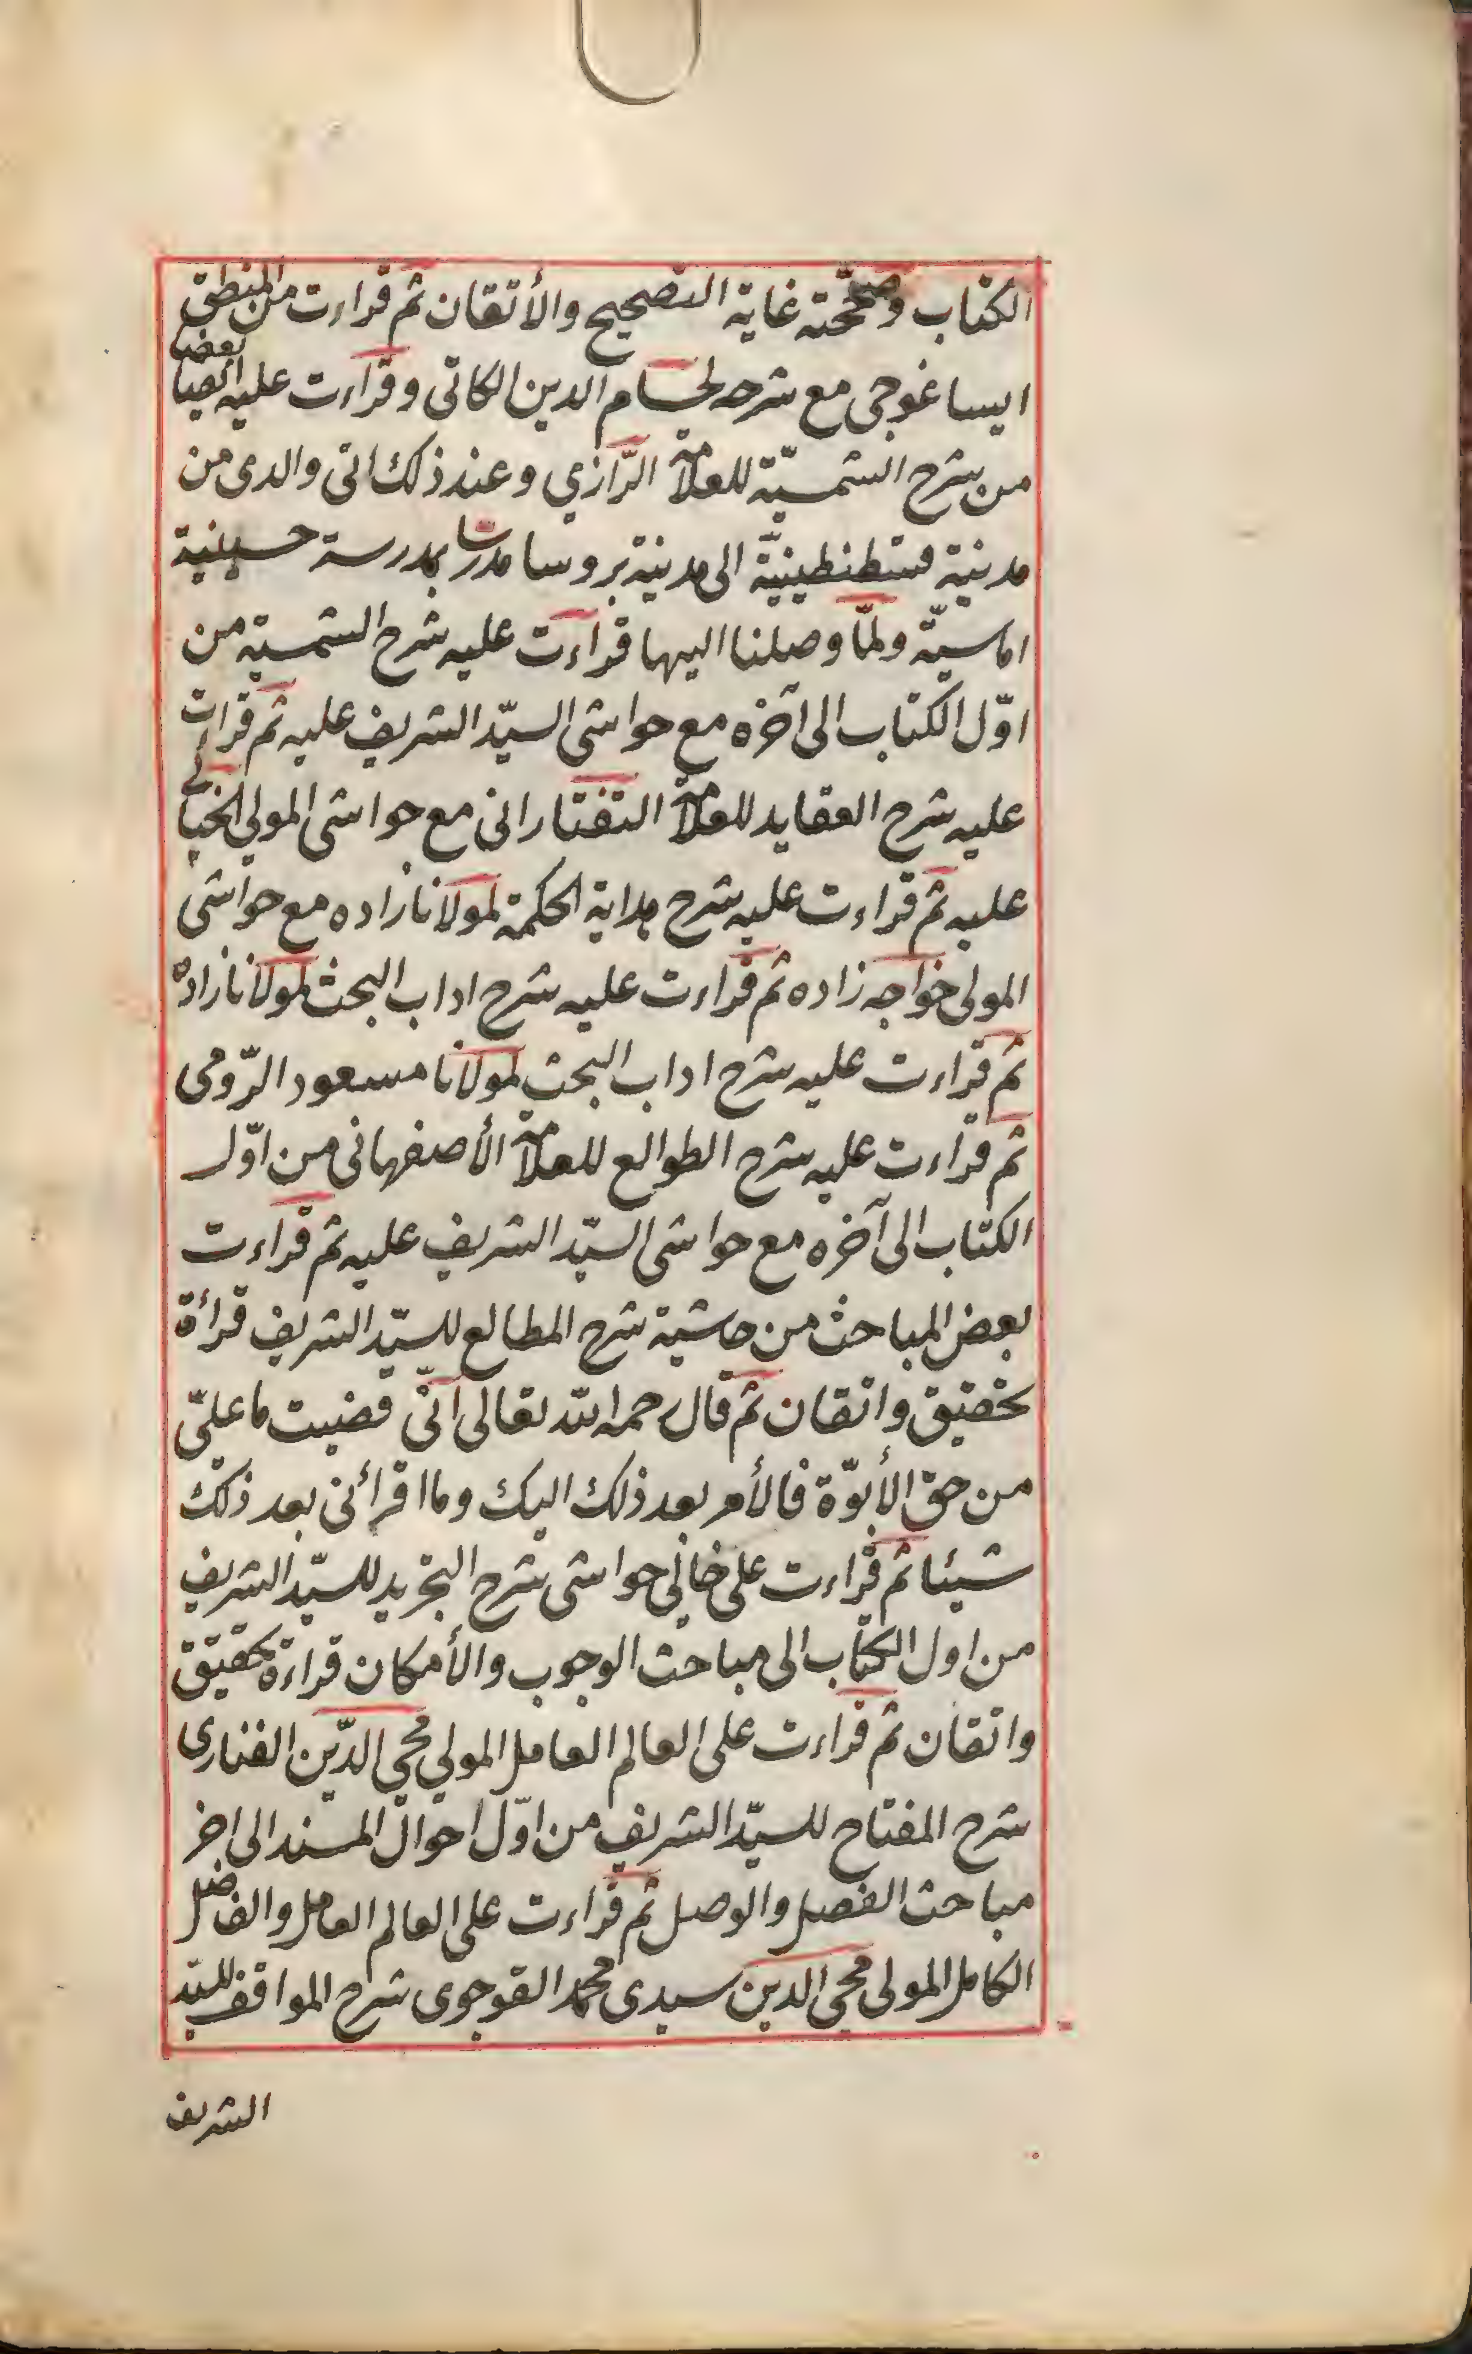 الكتاب وصححته غاية التصحيح والأتقان ثم قراءت من المنطق
ايسا غوجى مع شرحه لحسام الدين الكاتى وقراءت عليه ايضا بعضا
من شرح الشمسيّة للعلامة الرّازي وعند ذلك اتى والدى من
مدينة قسطنطينيّة الى مدينة بروسا مدرسا بمدرسة حسينية
اماسيّة ولمّا وصلنا اليها قراءت عليه شرح الشمسية من
اوّل الكتاب الى آخره مع حواشى السيّد الشريف عليه ثم قرات
عليه شرح العقايد للعلامة التفتازانى مع حواشى المولى الخيالى
عليه ثم قراءت عليه شرح هداية الحكمة لمولانا زاده مع حواشى
المولى خواجه زاده ثم قراءت عليه شرح اداب البحث لمولانا زاده
ثم قراءت عليه شرح اداب البحث لمولانا مسعود الرّومى
ثم قراءت عليه شرح الطوالع للعلامة الأصفهانى من اوّل
الكتاب الى آخره مع حواشى السيّد الشريف عليه ثم قراءت
بعض المباحث من حاشية شرح المطالع للسيّد الشريف قرأة
تحقيق واتقان ثم قال رحمه الله تعالى انّى قضيت ما علىّ
من حق الأبوّة فالأمر بعد ذلك اليك وما اقرأنى بعد ذلك
شيئا ثم قراءت على خالى حواشى شرح التجريد للسيّد الشريف
من اول الكتاب الى مباحث الوجوب والأمكان قراءة تحقيق
واتقان ثم قراءت على العالم العامل المولى محيى الدّين الفنارى
شرح المفتاح للسيّد الشريف من اوّل احوال المسند الى اخر
مباحث الفصل والوصل ثم قراءت على العالم العامل والفاضل
الكامل المولى محيى الدين سيدى محمد القوجوى شرح المواقف للسيّد
الشريف